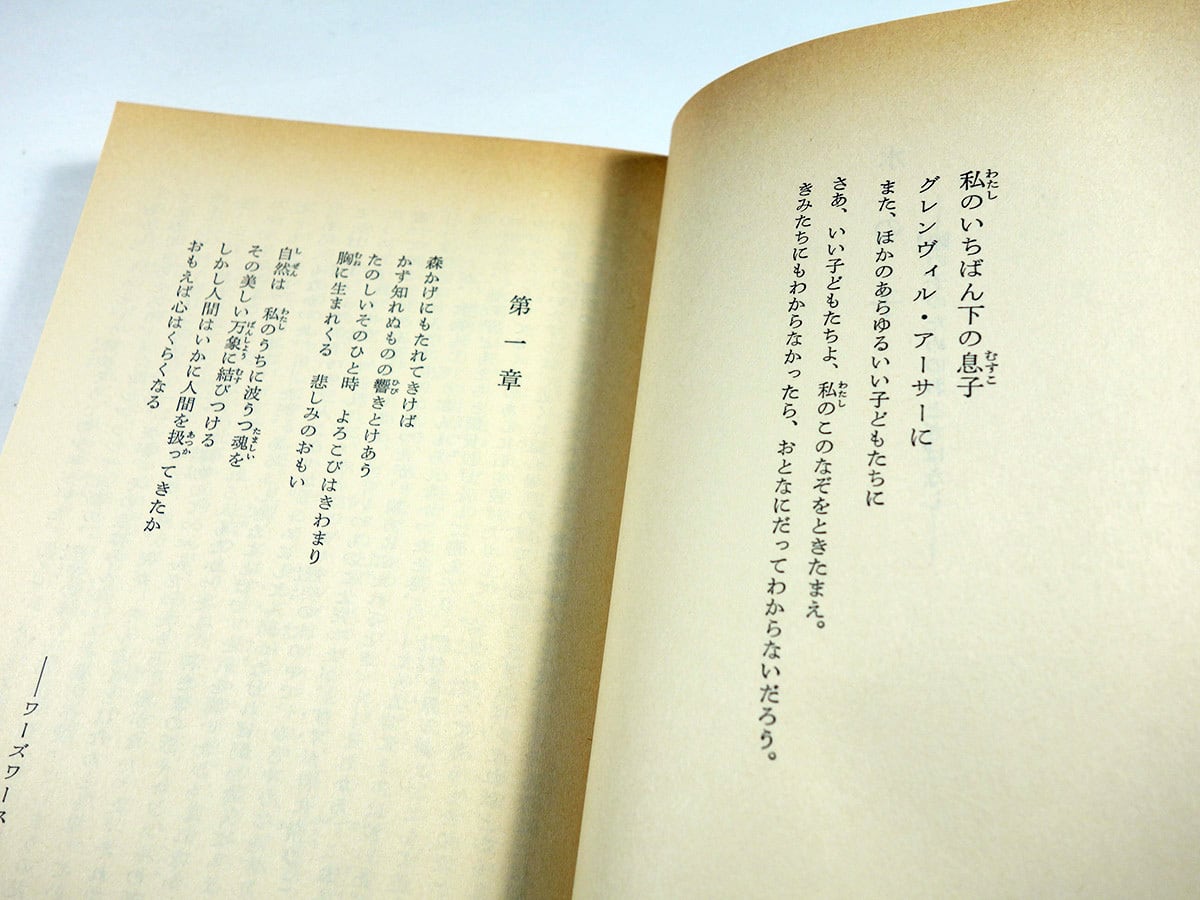 私のいちばん下の息子
グレンヴィル・アーサーに
また、ほかのあらゆるいい子どもたちに
さあ、いい子どもたちよ、私のこのなぞをときたまえ。
きみたちにもわからなかったら、おとなにだってわからないだろう。
第一章
森かげにもたれてきけば
かず知れぬものの響きとけあう
たのしいそのひと時　よろこびはきわまり
胸に生まれくる　悲しみのおもい
自然は　私のうちに波うつ魂を
その美しい万象に結びつける
しかし人間はいかに人間を扱ってきたか
おもえば心はくらくなる
――ワーズワース